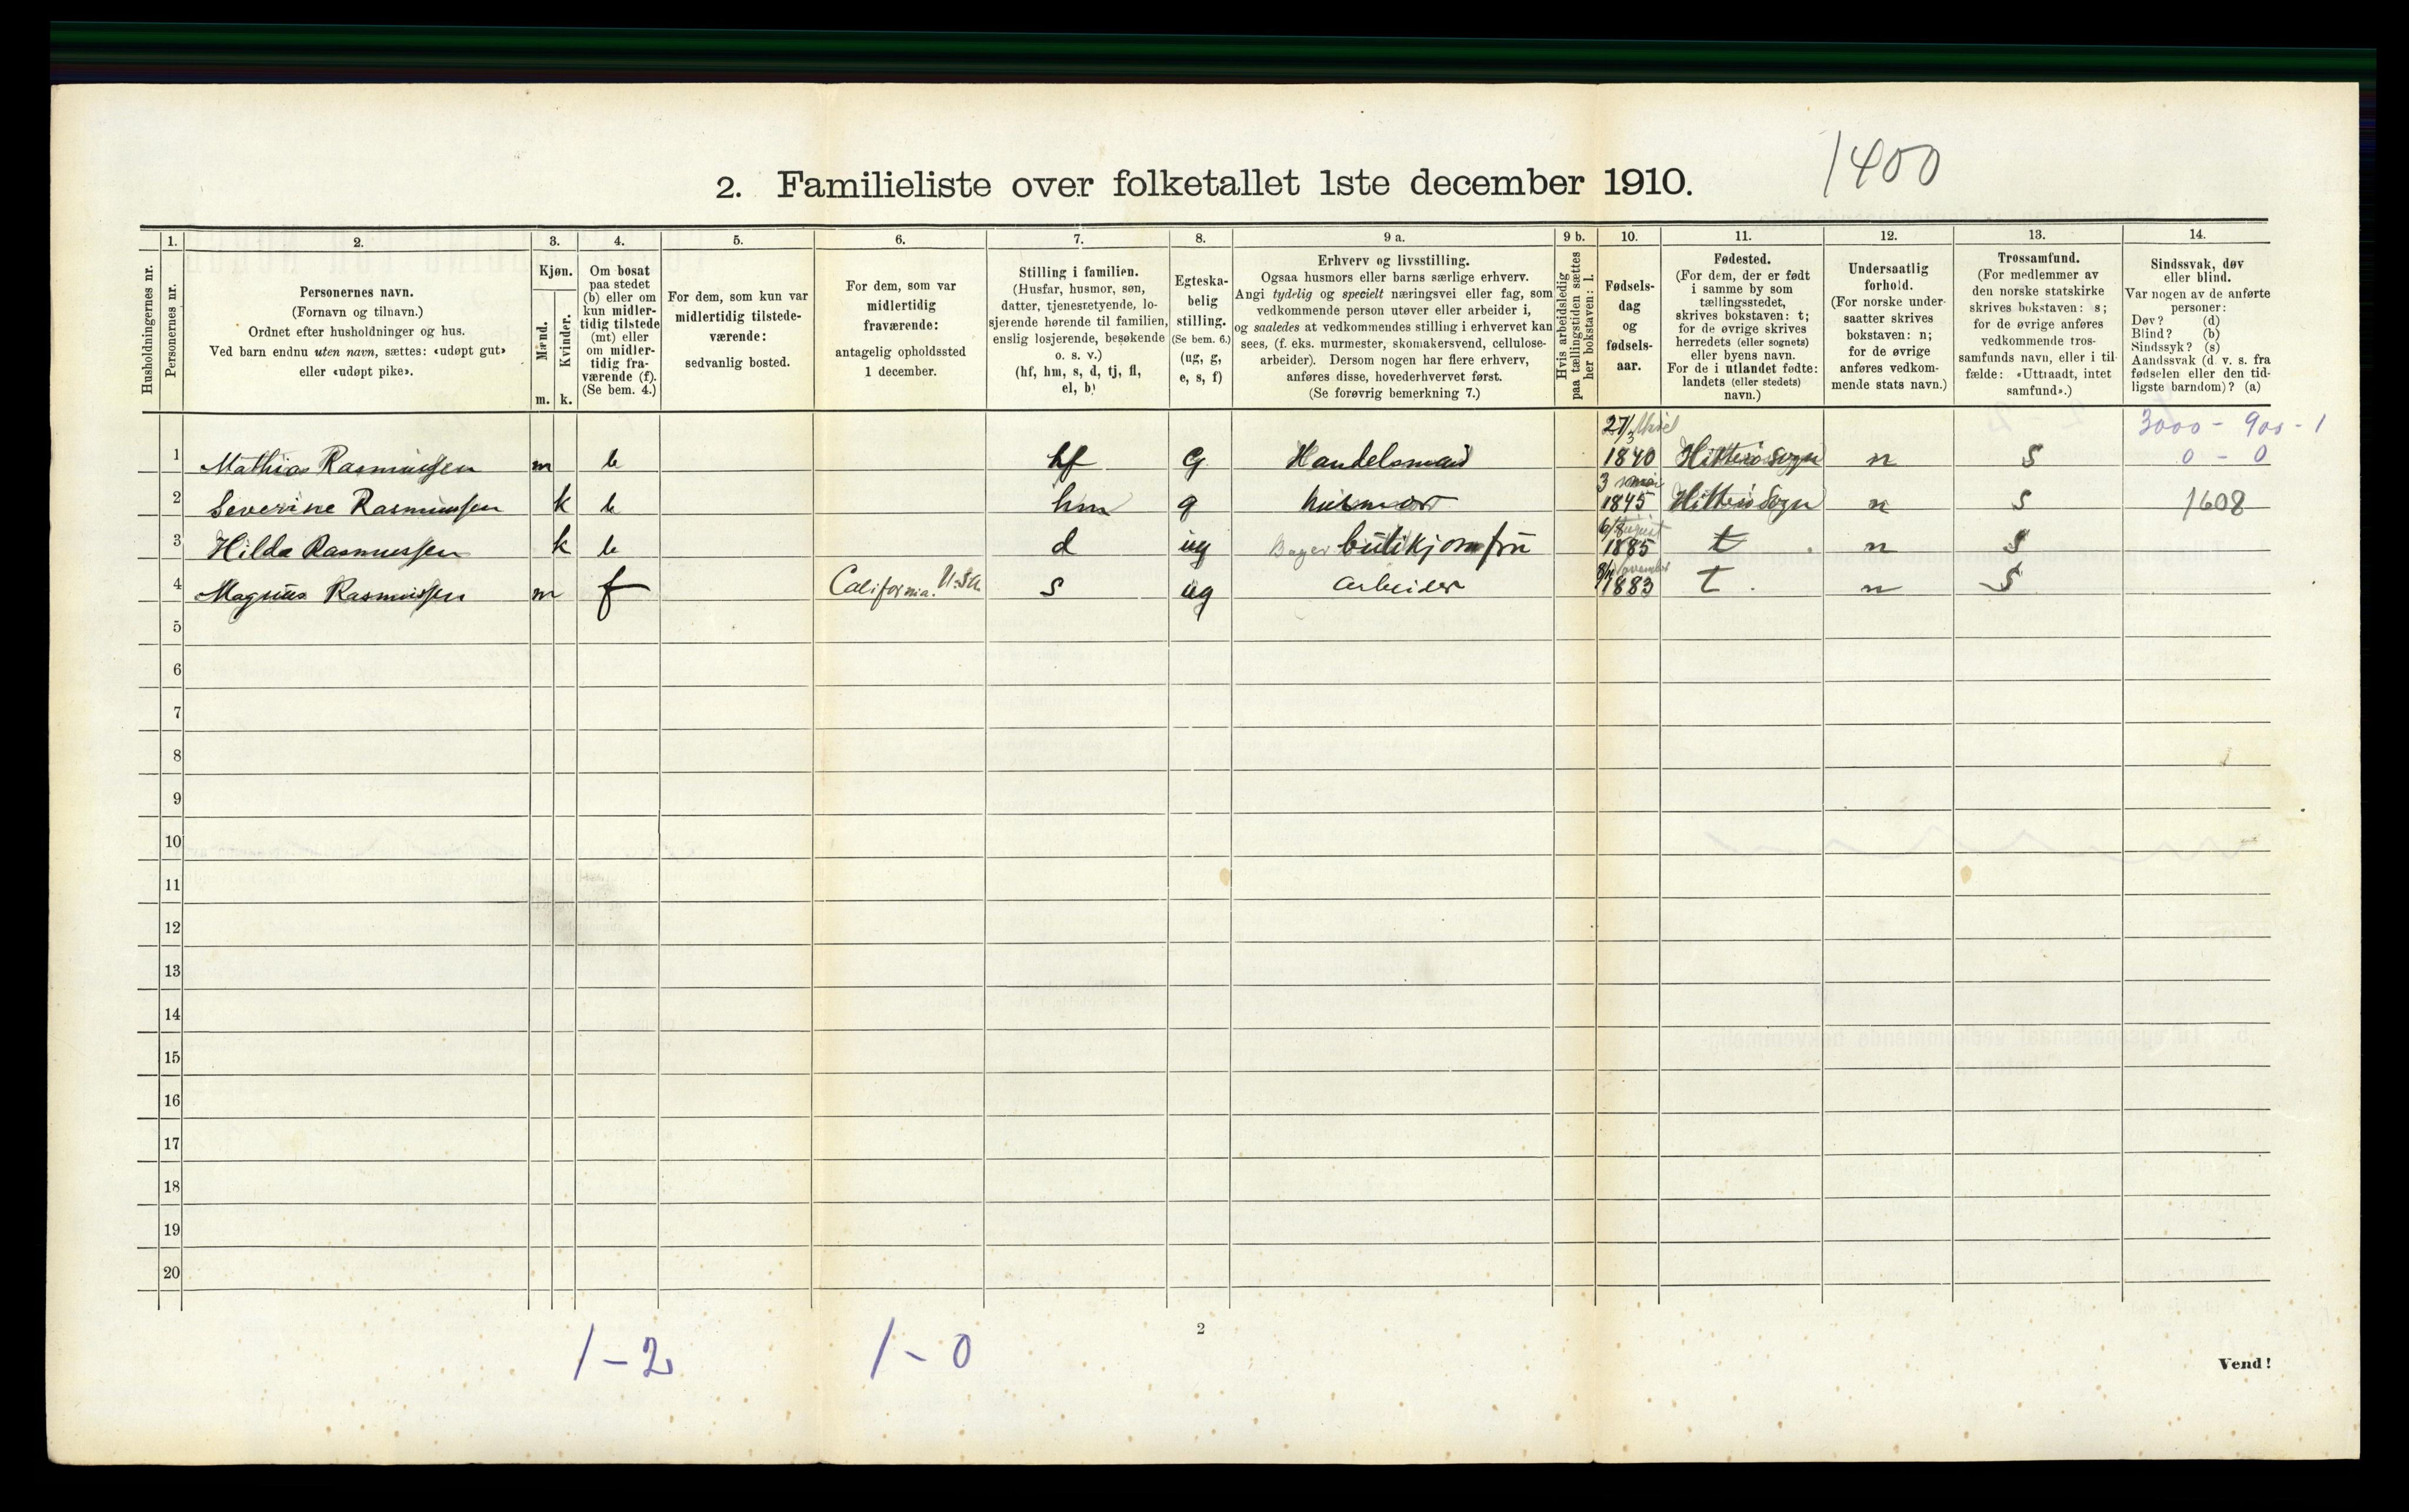 1400
2. Familieliste over folketallet 1ste december 1910.
Husholdningernes nr.
1.
Personernes nr.
2.
Personernes navn.
(Fornavn og tilnavn.)
Ordnet efter husholdninger og hus.
Ved barn endnu uten navn, sættes: «udøpt gut»
eller «udøpt pike».
3.
Kjøn.
Mænd.
Kvinder.
m. k.
4.
Om bosat
paa stedet
(b) eller om
kun midler-
tidig tilstede
(mt) eller
om midler-
tidig fra-
værende (f).
(Se bem. 4.)
5.
For dem, som kun var
midlertidig tilstede-
værende:
sedvanlig bosted.
6.
For dem, som var
midlertidig
fraværende:
antagelig opholdssted
1 december.
7.
Stilling i familien.
(Husfar, husmor, søn,
datter, tjenestetyende, lo-
sjerende hørende til familien,
enslig losjerende, besøkende
o. s. v.)
(hf, hm, s, d, tj, fl,
el, b)
8.
Egteska-
belig
stilling.
(Se bem. 6.)
(ug, g,
e, s, f)
9 a.
Erhverv og livsstilling.
Ogsaa husmors eller barns særlige erhverv.
Angi tydelig og specielt næringsvei eller fag, som
vedkommende person utøver eller arbeider i,
og saaledes at vedkommendes stilling i erhvervet kan
sees, (f. eks. murmester, skomakersvend, cellulose-
arbeider). Dersom nogen har flere erhverv,
anføres disse, hovederhvervet først.
(Se forøvrig bemerkning 7.)
9 b.
Hvis arbeidsledig
paa tællingstiden sættes
her bokstaven: l.
10.
Fødsels-
dag
og
fødsels-
aar.
11.
Fødested.
(For dem, der er født
i samme by som
tællingsstedet,
skrives bokstaven: t;
for de øvrige skrives
herredets (eller sognets)
eller byens navn.
For de i utlandet fødte:
landets (eller stedets)
navn.)
12.
Undersaatlig
forhold.
(For norske under-
saatter skrives
bokstaven: n;
for de øvrige
anføres vedkom-
mende stats navn.)
13.
Trossamfund.
(For medlemmer av
den norske statskirke
skrives bokstaven: s;
for de øvrige anføres
vedkommende tros-
samfunds navn, eller i til-
fælde: «Uttraadt, intet
samfund».)
14.
Sindssvak, døv
eller blind.
Var nogen av de anførte
personer:
Døv? (d)
Blind? (b)
Sindssyk? (s)
Aandssvak (d. v. s. fra
fødselen eller den tid-
ligste barndom)? (a)
27/3 3000 - 900 - 1
1 Mathias Rasmussen m b hf G Handelsmand 1840 Hitterö Sogn n S 0 - 0
3 mai
2 Severine Rasmussen k b hm g husmor 1845 Hitterö Sogn n S 1608
6/8 August
3 Hilda Rasmussen k b d ug Bager butikjomfru 1885 t n S
8/11 November
4 Magnus Rasmussen m f California. U.S.A. s ug arbeider 1883 t. n S
5
6
7
8
9
10
11
12
13
14
15
16
17
18
19
20
1 - 2 1 - 0
2
Vend!